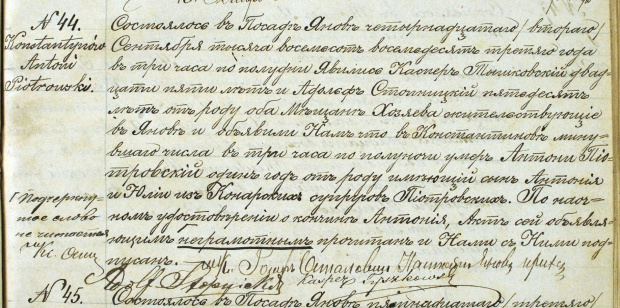 N 44.
Konstantynów
Antoni
Piotrowski.
Состоялось въ Посадѣ Яновѣ четырнадцатаго / втораго /
Сентября тысяча восемьсотъ восемьдесятъ третяго года
въ три часа по полудни Явились Касперъ двад-
цати пяти лѣтъ и Адольфъ пятьдесятъ
лѣтъ отъ роду оба Мѣщане Хозяева жительствующіе
въ Яновѣ и объявили Намъ что въ Константиновѣ мину-
вшаго числа въ три часа по полуночи умеръ Антони Піо-
тровскій одинъ годъ отъ роду имѣющій сынъ Антонія
и Юліи изъ Конарскихъ супруговъ Піотровскихъ. По наоч-
номъ удостовѣреніи о кончинѣ Антонія, Актъ сей объявля-
ющимъ неграмотнымъ прочитанъ и Нами съ Ними под-
писанъ.
слово
не читается
N 45.
Состоялось въ Посадѣ Яновѣ пятнадцатаго / третьяго /